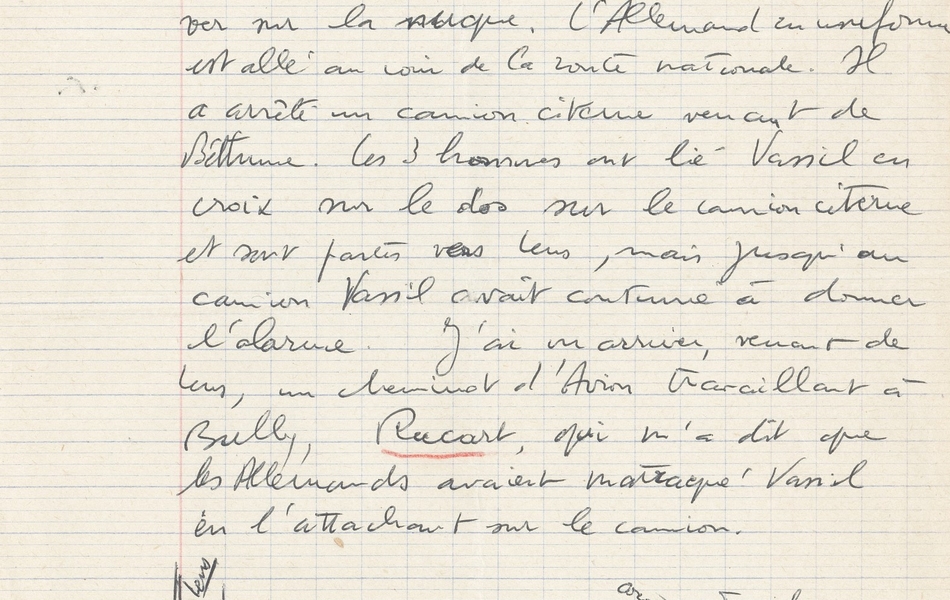 ver sur la nuque. L'Allemand en uniforme
est allé au coin de la route nationale. Il
a arrêté un camion citerne venant de
Béthune. Les 3 hommes ont lié Vassil en
croix sur le dos sur le camion citerne
et sont partis vers Lens, mais jusqu'au
camion Vassil avait continué à donner
l'alarme. J'ai vu arriver, venant de
Lens, un cheminot d'Avion travaillant à
Bully, Rucart, qui m'a dit que
les Allemands avaient matraqué Vassil
en l'attachant sur le camion.
Lens